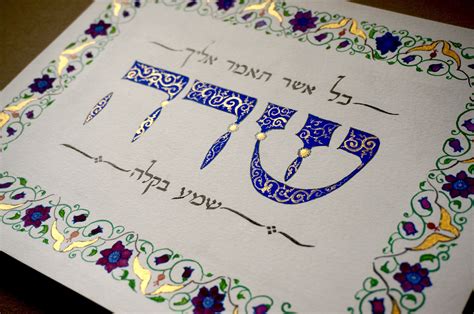 כל אשר תאמר אליך
שרה
שמע בקלה